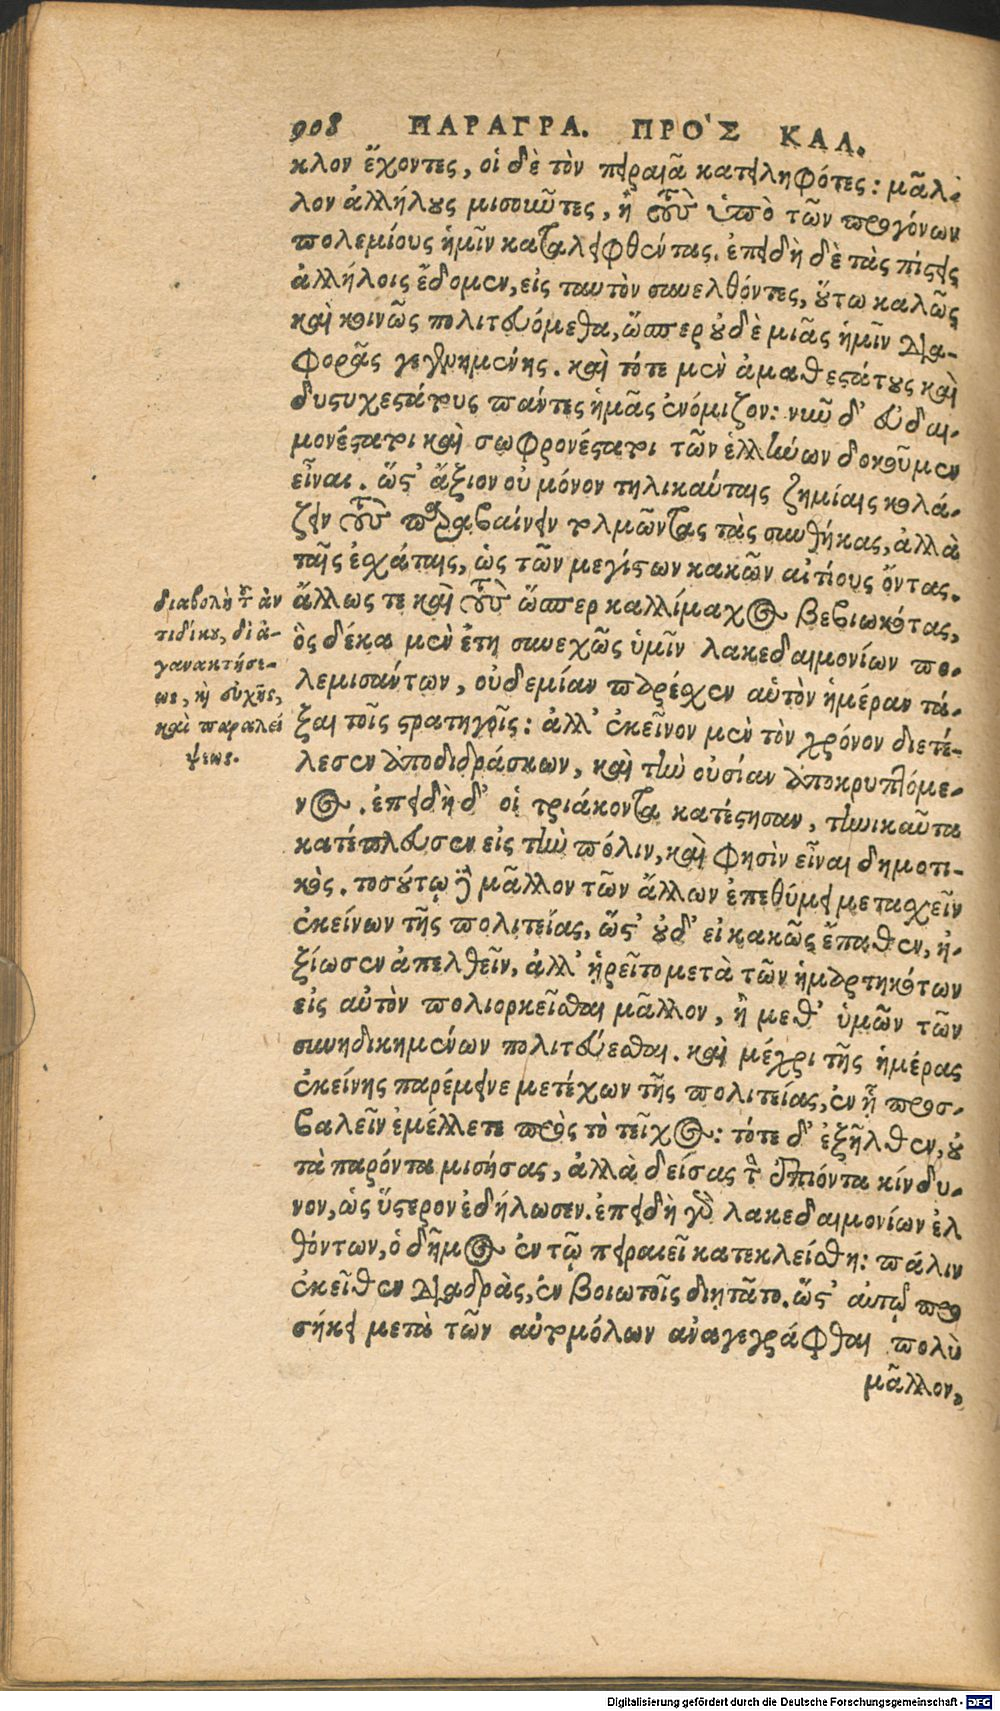 908 ΠΑΡΑΓΡΑ. ΠΡΟ'Σ ΚΑΛ.
κλον ἔχοντες, οἱ δὲ τὸν πειραιᾶ κατειληφότες: μᾶλ-
λον ἀλλήλους μισοῦντες, ἢ τοὺς ὑπὸ τῶν προγόνων
πολεμίους ἡμῖν καταλειφθέντας. ἐπειδὴ δὲ τὰς πίστεις
ἀλλήλοις ἔδομεν, εἰς ταυτὸν συνελθόντες, οὕτω καλῶς
καὶ κοινῶς πολιτευόμεθα, ὥσπερ οὐδὲ μιᾶς ἡμῖν δια-
φορᾶς γεγενημένης. καὶ τότε μὲν ἀμαθεστάτους καὶ
δυστυχεστάτους πάντες ἡμᾶς ἐνόμιζον: νῦν δ' εὐδαι-
μονέστατοι καὶ σωφρονέστατοι τῶν ἑλλήνων δοκοῦμεν
εἶναι. ὥστ' ἄξιον οὐ μόνον τηλικαύταις ζημίαις κολά-
ζειν τοὺς παραβαίνειν τολμῶντας τὰς συνθήκας, ἀλλὰ
ταῖς ἐσχάταις, ὡς τῶν μεγίστων κακῶν αἰτίους ὄντας.
ἄλλως τε καὶ τοὺς ὥσπερ καλλίμαχος βεβιωκότας,
ὃς δέκα μὲν ἔτη συνεχῶς ὑμῖν λακεδαιμονίων πο-
λεμισάντων, οὐδεμίαν παρέσχεν αὑτὸν ἡμέραν τά-
ξαι τοῖς στρατηγοῖς: ἀλλ' ἐκεῖνον μὲν τὸν χρόνον διετέ-
λεσεν ἀποδιδράσκων, καὶ τὴν οὐσίαν ἀποκρυπτόμε-
νος. ἐπειδὴ δ' οἱ τριάκοντα κατέστησαν, τηνικαῦτα
κατέπλευσεν εἰς τὴν πόλιν, καὶ φησὶν εἶναι δημοτι-
κὸς. τοσούτῳ δὲ μᾶλλον τῶν ἄλλων ἐπεθύμει μετασχεῖν
ἐκείνων τῆς πολιτείας, ὥστ' οὐδ' εἰ κακῶς ἔπαθεν, ἠ-
ξίωσεν ἀπελθεῖν, ἀλλ' ᾑρεῖτο μετὰ τῶν ἡμαρτηκότων
εἰς αὐτὸν πολιορκεῖσθαι μᾶλλον, ἢ μεθ' ὑμῶν τῶν
συνηδικημένων πολιτεύεσθαι. καὶ μέχρι τῆς ἡμέρας
ἐκείνης παρέμεινε μετέχων τῆς πολιτείας, ἐν ᾗ προσ-
βαλεῖν ἐμέλλετε πρὸς τὸ τεῖχος: τότε δ' ἐξῆλθεν, οὐ
τὰ παρόντα μισήσας, ἀλλὰ δείσας τὸν ἐπιόντα κίνδυ-
νον, ὡς ὕστερον ἐδήλωσεν. ἐπειδὴ γὰρ λακεδαιμονίων ἐλ
θόντων, ὁ δῆμος ἐν τῷ πειραιεῖ κατεκλείσθη: πάλιν
ἐκεῖθεν διαδρὰς, ἐν βοιωτοῖς διῃτᾶτο. ὥστ' αὐτῷ προ
σήκει μετὰ τῶν αὐτομόλων ἀναγεγράφθαι πολὺ
μᾶλλον,
διαβολὴ τοῦ ἀν
τιδίκου, δι' ἀ-
γανακτήσε-
ως, καὶ συχῆς,
καὶ παραλεί
ψεως.
Digitalisierung gefördert durch die Deutsche Forschungsgemeinschaft - DFG